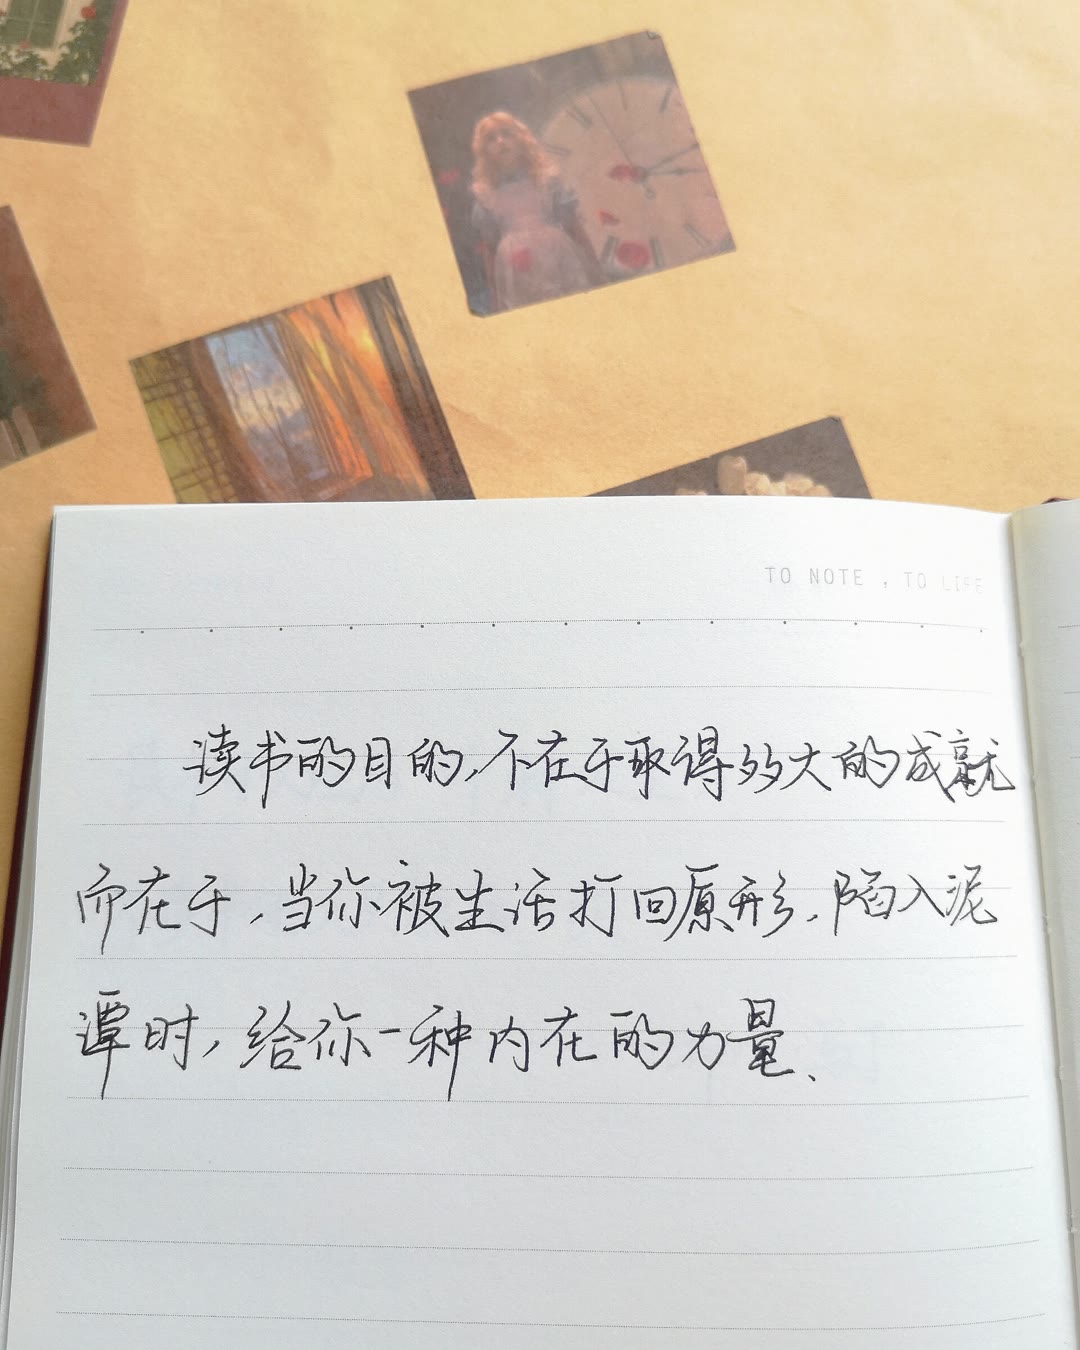 TO NOTE , TO LIFE
读书的目的,不在于取得多大的成就
而在于,当你被生活打回原形,陷入泥
潭时,给你一种内在的力量、